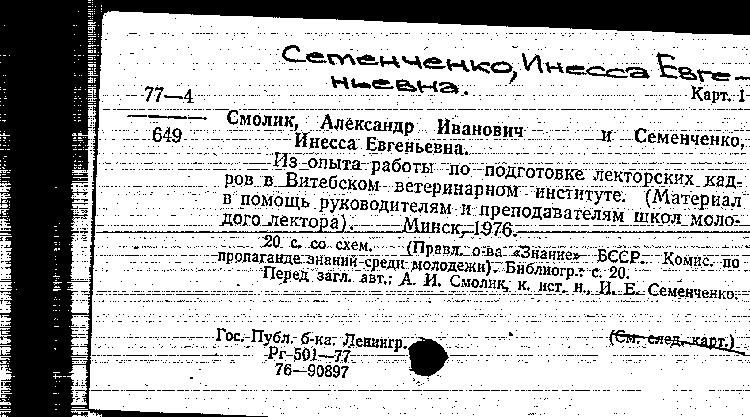 Семенченко, Инесса Евге-
ньевна.
77—4
Карт. 1
649
Смолик, Александр Иванович и Семенченко,
Инесса Евгеньевна.
Из опыта работы по подготовке лекторских кад-
ров в Витебском ветеринарном институте. (Материал
в помощь руководителям и преподавателям школ моло-
дого лектора). Минск, 1976.
20 с. со схем. (Правл. о-ва «Знание» БССР. Комис. по
пропаганде знаний среди молодежи). Библиогр.: с. 20.
Перед загл. авт.: А. И. Смолик, к. ист. н., И. Е. Семенченко.
Гос. Публ. б-ка. Ленингр.
(См. след. карт.)
Рг 501—77
76—90897